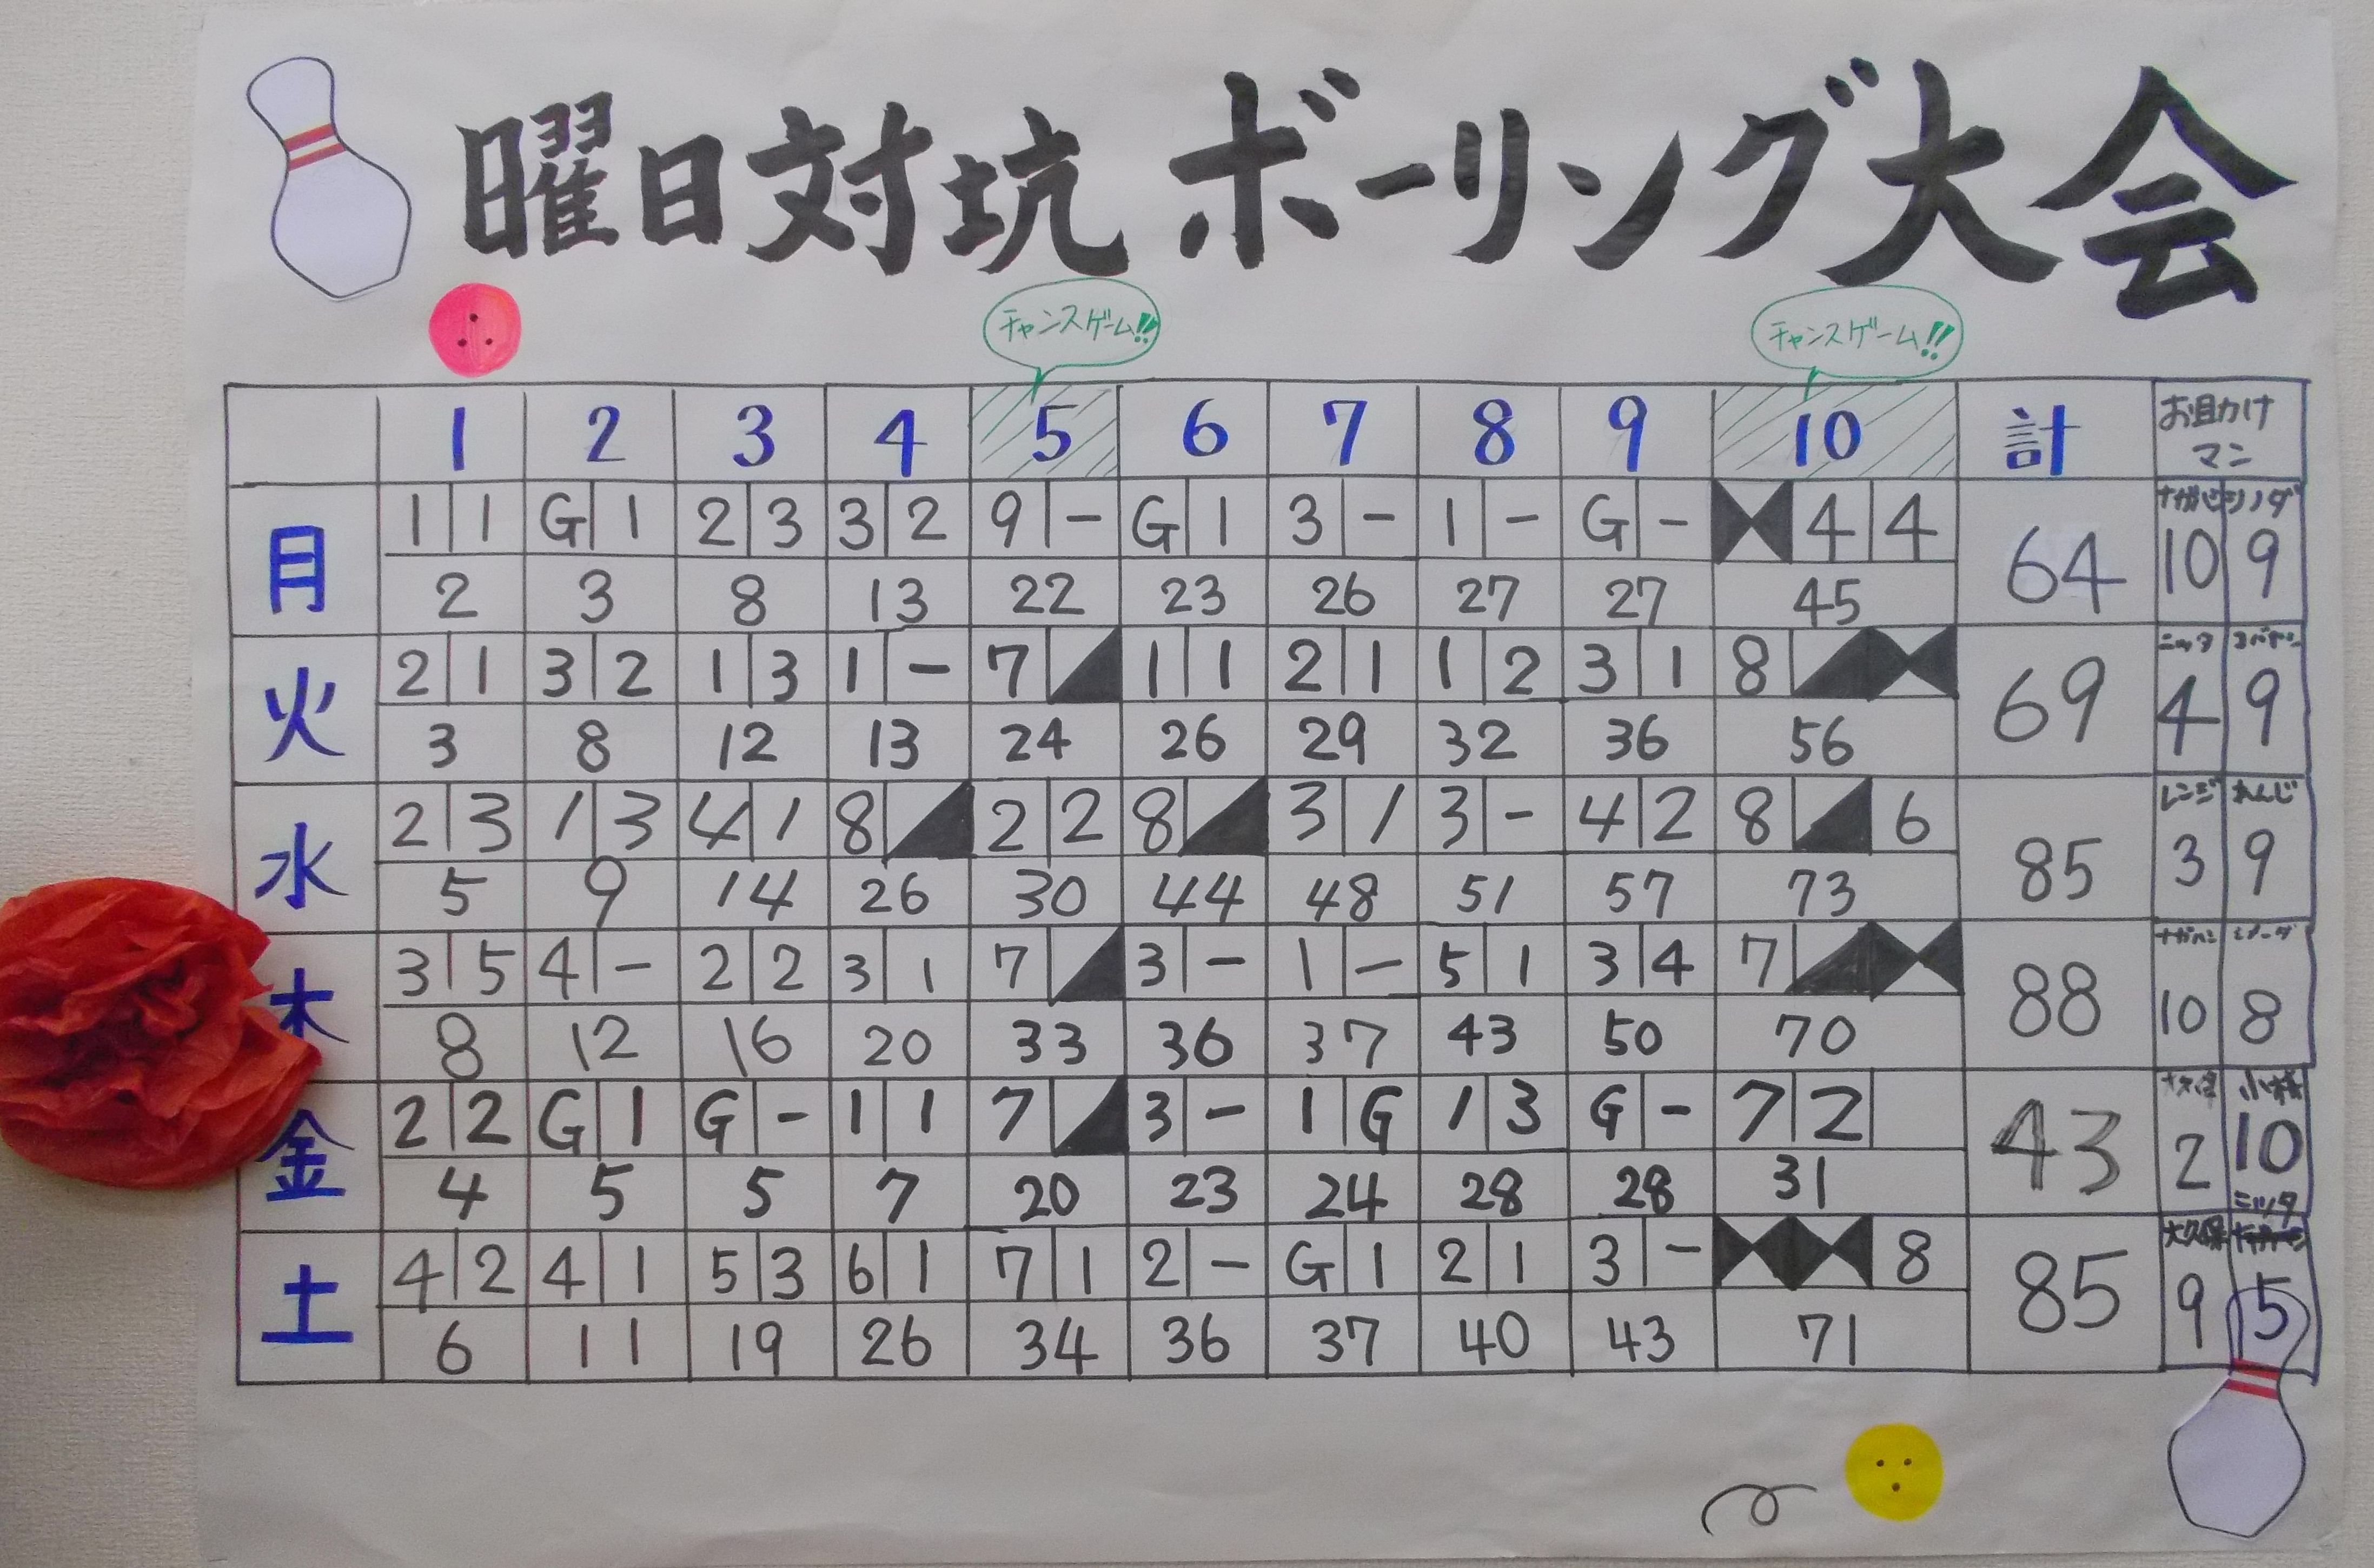 曜日対坑 ボーリング大会
チャンスゲーム!! チャンスゲーム!!
1 2 3 4 5 6 7 8 9 10 計 お助け
マン
月 1 1 G 1 2 3 3 2 9 - G 1 3 - 1 - G - 4 4 64 10 9
2 3 8 13 22 23 26 27 27 45
火 2 1 3 2 1 3 1 - 7 1 1 2 1 1 2 3 1 8 69 4 9
3 8 12 13 24 26 29 32 36 56
レンジ れんじ
水 2 3 1 3 4 1 8 2 2 8 3 1 3 - 4 2 8 6 85 3 9
5 9 14 26 30 44 48 51 57 73
木 3 5 4 - 2 2 3 1 7 3 - 1 - 5 1 3 4 7 88 10 8
8 12 16 20 33 36 37 43 50 70
金 2 2 G 1 G - 1 1 7 3 - 1 G 1 3 G - 7 2 43 2 10
4 5 5 7 20 23 24 28 28 31
ニッタ
大久保
土 4 2 4 1 5 3 6 1 7 1 2 - G 1 2 1 3 - 8 85 9 5
6 11 19 26 34 36 37 40 43 71